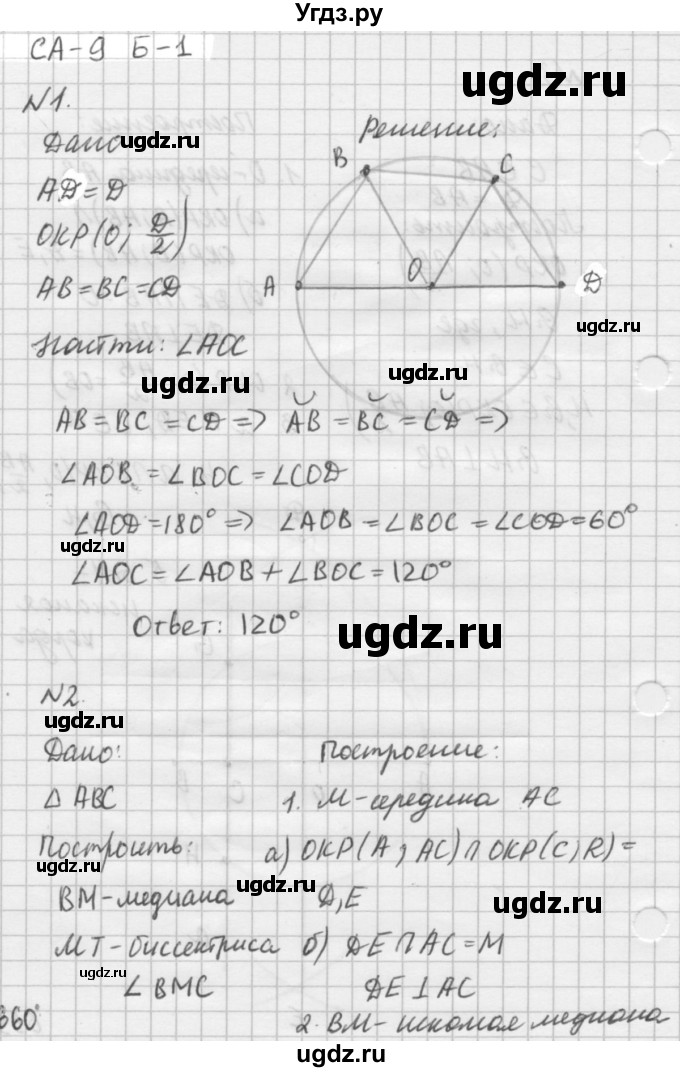 Угдз.ру
СА-9 Б-1
ugdz.ru
N1.
Дано
Решение:
AD = D
ОКР(О; D/2)
AB = BC = CD
B C
A O D
ugdz.ru
Найти: ∠AOC
ugdz.ru
AB = BC = CD => ◡AB = ◡BC = ◡CD =>
∠AOB = ∠BOC = ∠COD
∠AOD = 180° => ∠AOB = ∠BOC = ∠COD = 60°
ugdz.ru
∠AOC = ∠AOB + ∠BOC = 120°
Ответ: 120°
ugdz.ru
N2.
ugdz.ru
Дано: Построение:
△ ABC 1. М-середина AC
Построить: а) ОКР(A; AC) ∩ ОКР(C; R) =
ugdz.ru
ugdz.ru
BM-медиана D, E
ugdz.ru
MT-биссектриса б) DE ∩ AC = M
ugdz.ru
∠ BMC DE ⊥ AC
360°
2. BM- искомая медиана
ugdz.ru